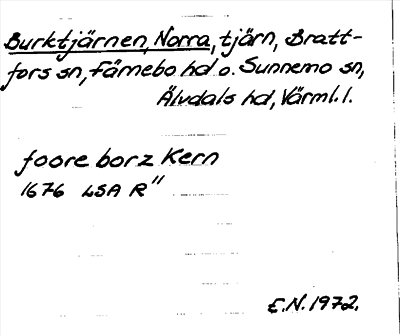 Burktjärnen, Norra, tjärn, Bratt-
fors sn, Färnebo hd o. Sunnemo sn,
Älvdals hd, Värml. l.
foore borz Kern
1676 LSA R"
E.N. 1972.